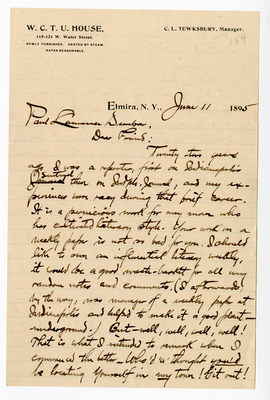 W. C. T. U. HOUSE,
C. L. TEWKSBURY, Manager.
115-121 W. Water Street.
NEWLY FURNISHED. HEATED BY STEAM.
RATES REASONABLE.
Elmira, N. Y., June 11 1895
Paul Laurence Dunbar,
Dear Friend:
Twenty two years
ago I was a reporter, first on Indianapolis
Sentinel then on Ind'pls Journal, and my ex-
periences were racy during that brief career.
It is a pernicious work for any man who
has cultivated literary style. Your work on a
weekly paper is not so bad for you. I should
like to own an influential literary weekly,
it would be a good waste-basket for all my
random notes and comments. (I afterwards,
by the way, was manager of a weekly paper at
Indianapolis and helped to make it a good plant—
underground.) But—well, well, well, well!
That is what I intended to remark when I
commenced the letter—Who'd 'a' thought you'd
be locating yourself in my town! Git out!